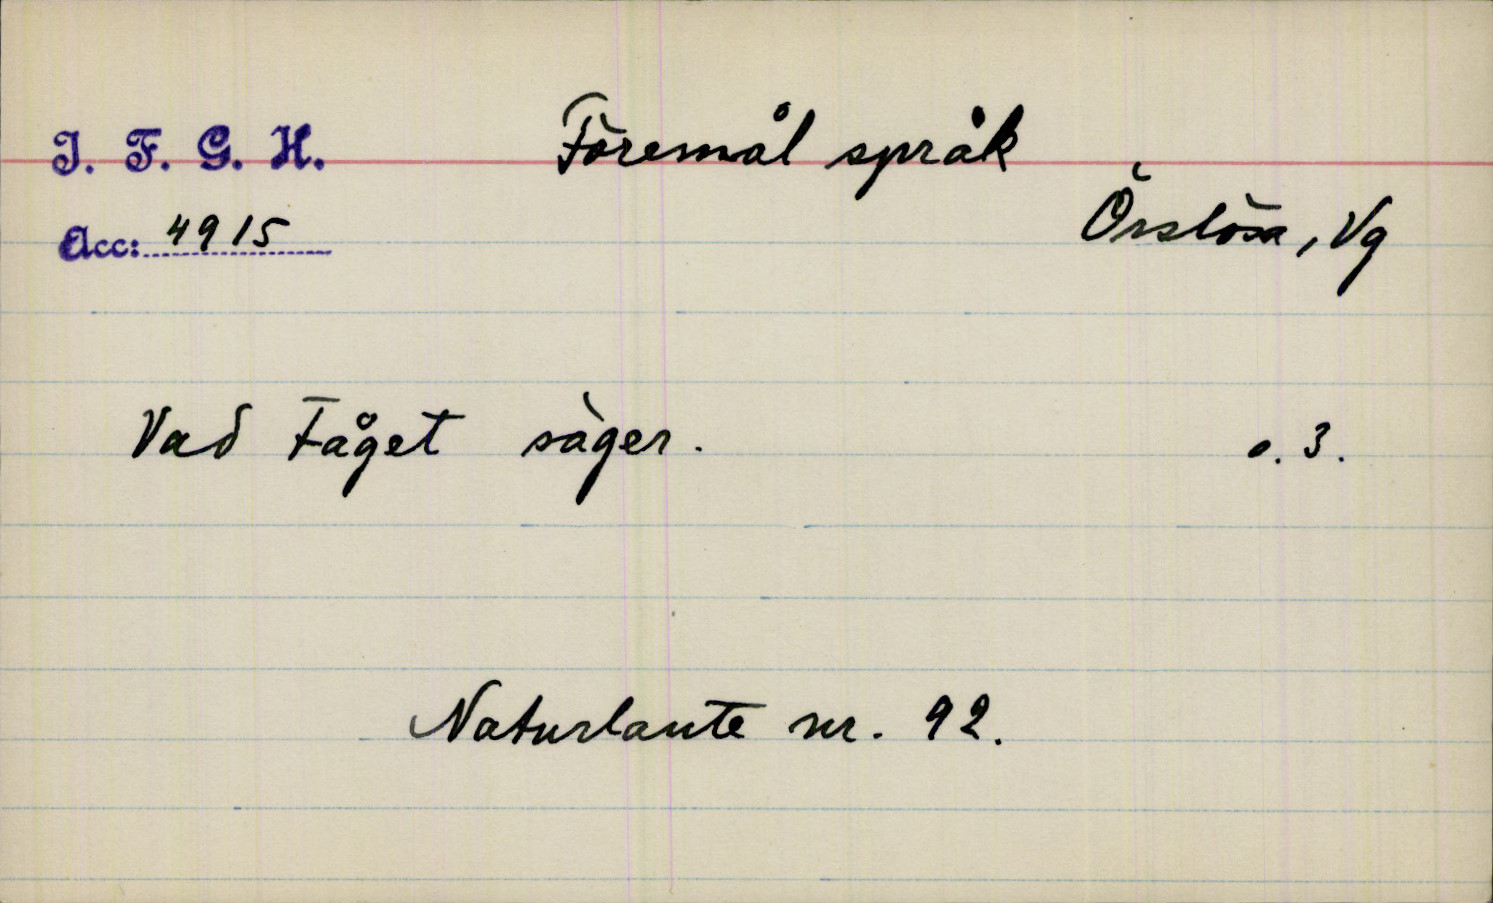 I. F. G. H.
Föremål språk
Acc: 4915
Örslösa, Vg
Vad Tåget säger.
s. 3.
Naturlaute nr. 92.